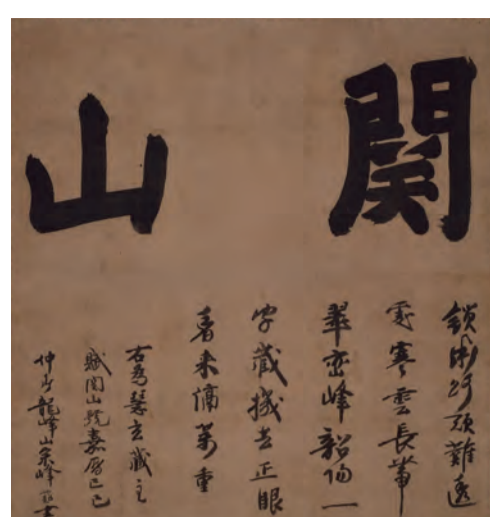 関山
鎖断路頭難透
處寒雲長帯
翠巒峰韶陽一
字蔵機去正眼
看来隔萬重
右為慧玄蔵主
賦関山号嘉暦己巳
仲春龍峰山宗峰書